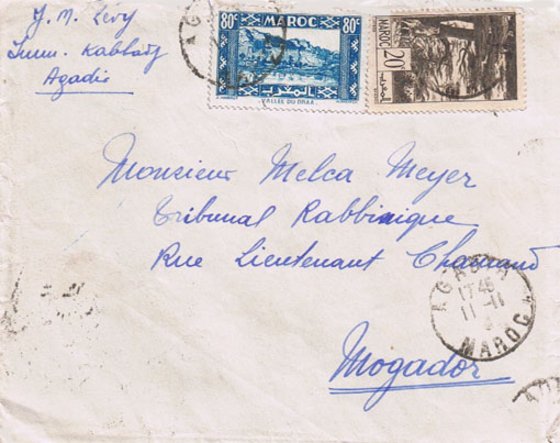 J. M. Lévy
Imm. Kabbaj
Agadir
80c MAROC 80c
المغرب
VALLÉE DU DRAA
MAROC
20F
Monsieur Melca Meyer
Tribunal Rabbinique
Rue Lieutenant Chamand
Mogador
AGADIR
17 45
11-11
MAROC